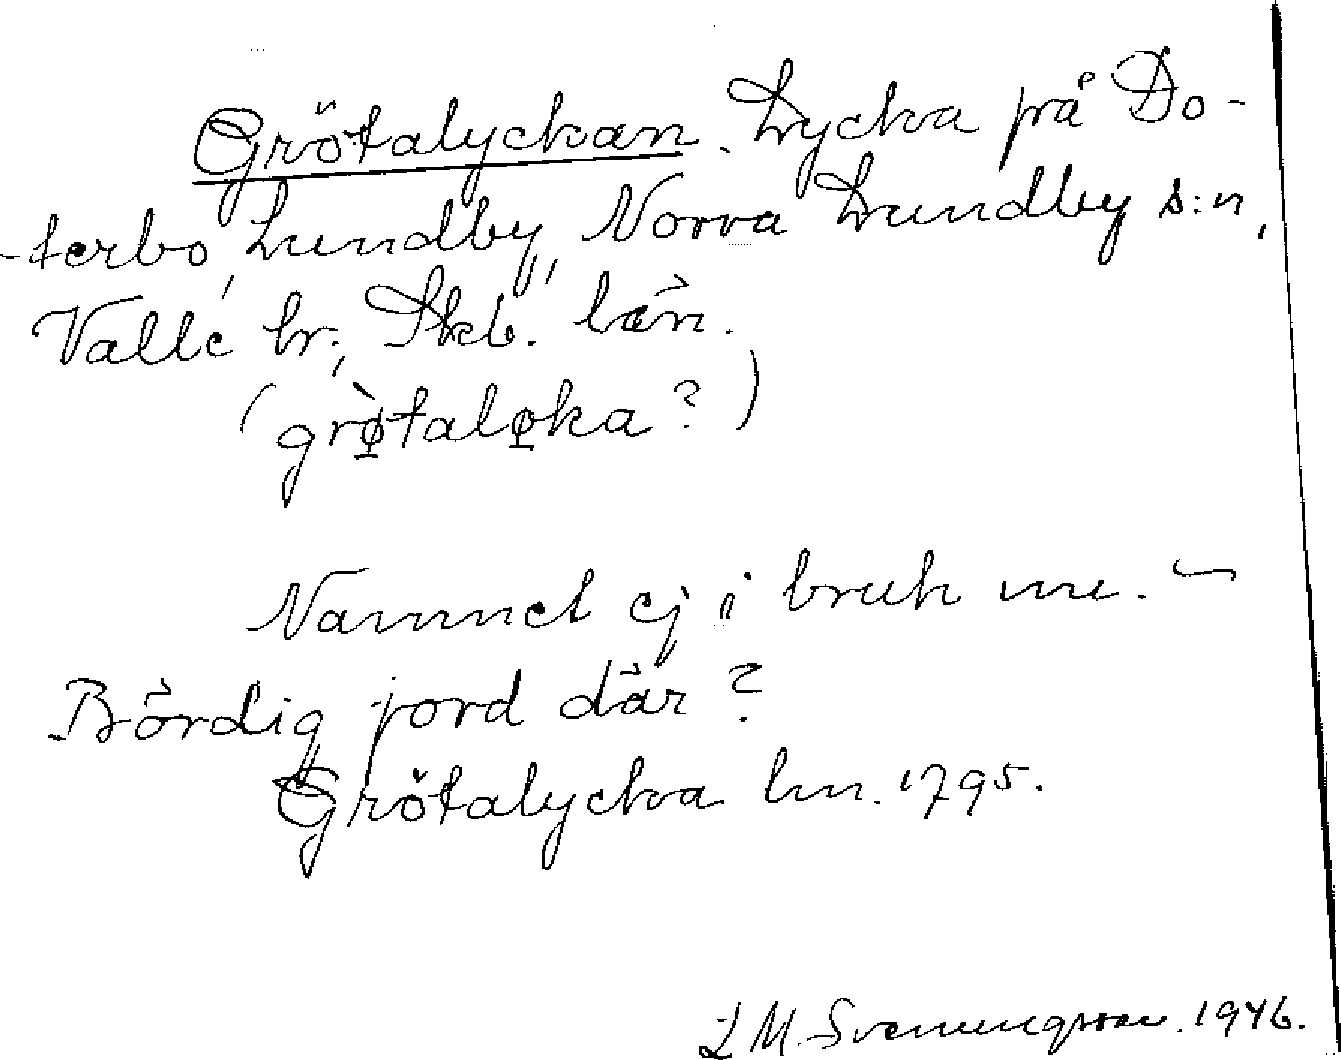 Grötalyckan. Lycka på Do-
terbo, Lundby, Norra Lundby s:n,
Valle hr., Skb. län.
(grø̀talø̱ka?)
Namnet ej i bruk nu. –
Bördig jord där?
Grötalycka lm. 1795.
L M. Svenungsson. 1946.